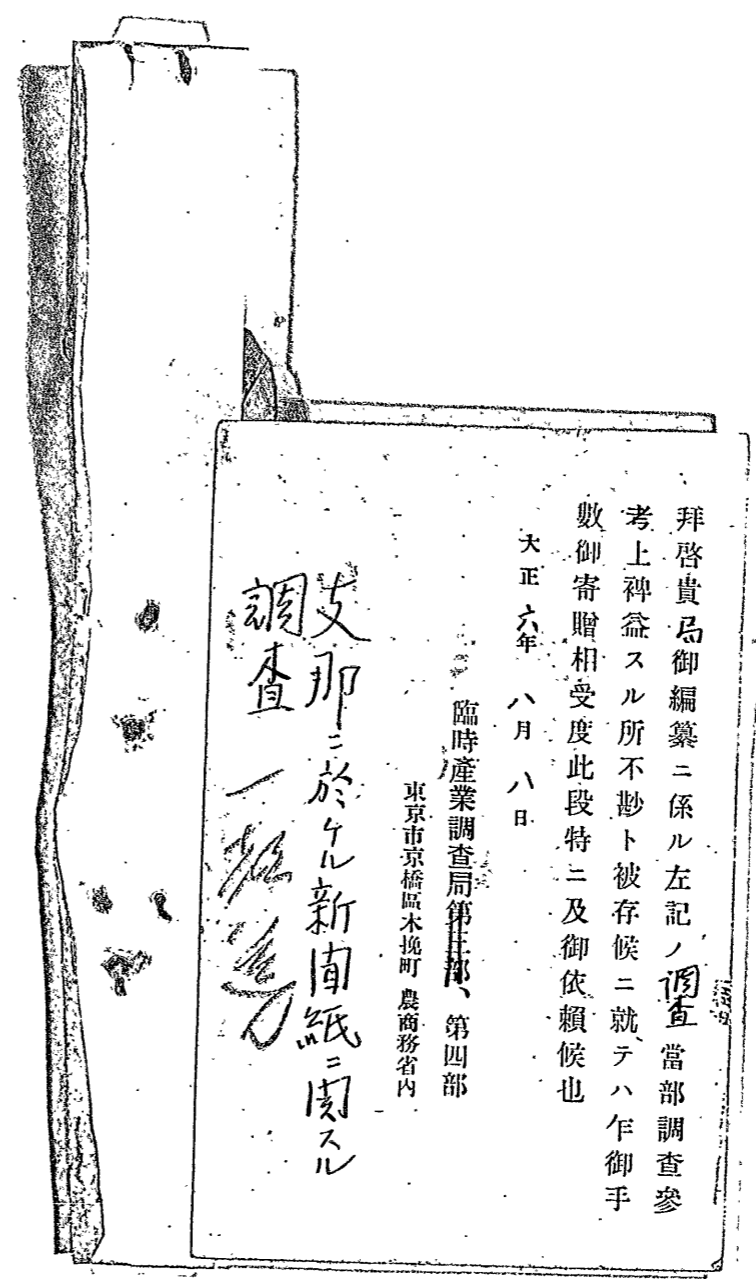 拜啓貴局御編纂ニ係ル左記ノ調査當部調査參
考上裨益スル所不尠ト被存候ニ就テハ乍御手
數御寄贈相受度此段特ニ及御依賴候也
大正六年八月八日
臨時產業調查局第三部、第四部
東京市京橋區木挽町 農商務省内
支那ニ於ケル新聞紙ニ関スル
調査 一